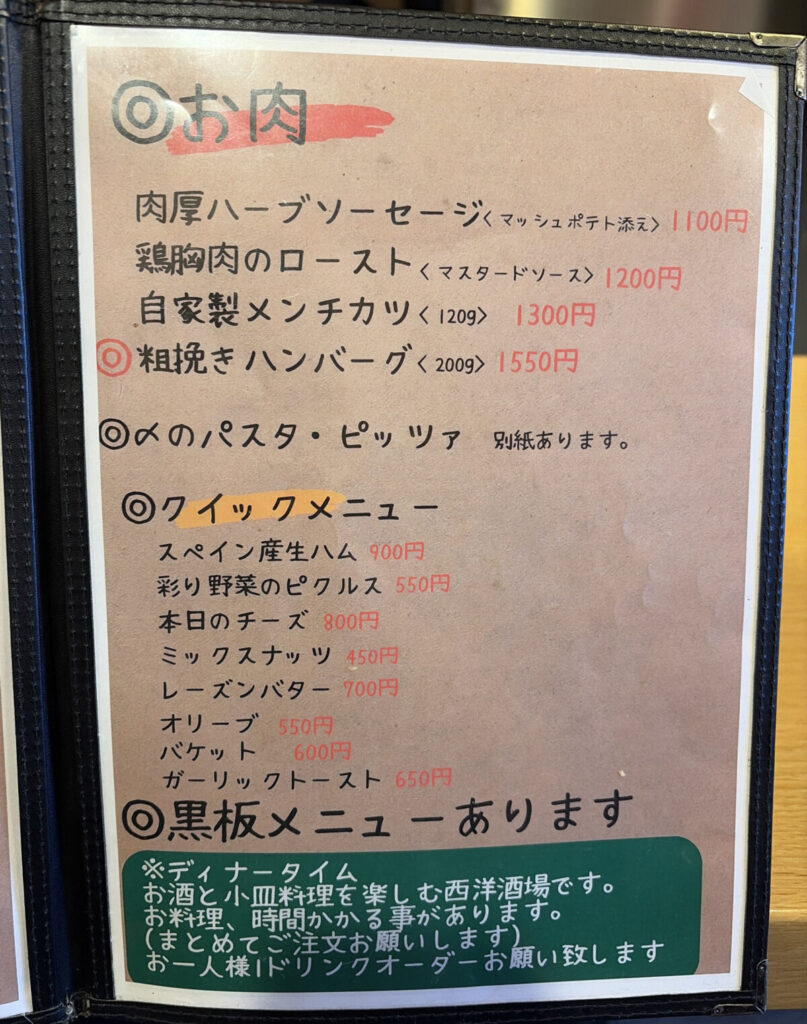 ◎お肉
肉厚ハーブソーセージ〈マッシュポテト添え〉1100円
鶏胸肉のロースト〈マスタードソース〉1200円
自家製メンチカツ〈120g〉 1300円
◎粗挽きハンバーグ〈200g〉1550円
◎〆のパスタ・ピッツァ 別紙あります。
◎クイックメニュー
スペイン産生ハム 900円
彩り野菜のピクルス 550円
本日のチーズ 800円
ミックスナッツ 450円
レーズンバター 700円
オリーブ 550円
バケット 600円
ガーリックトースト 650円
◎黒板メニューあります
※ディナータイム
お酒と小皿料理を楽しむ西洋酒場です。
お料理、時間かかる事があります。
(まとめてご注文お願いします)
お一人様1ドリンクオーダーお願い致します